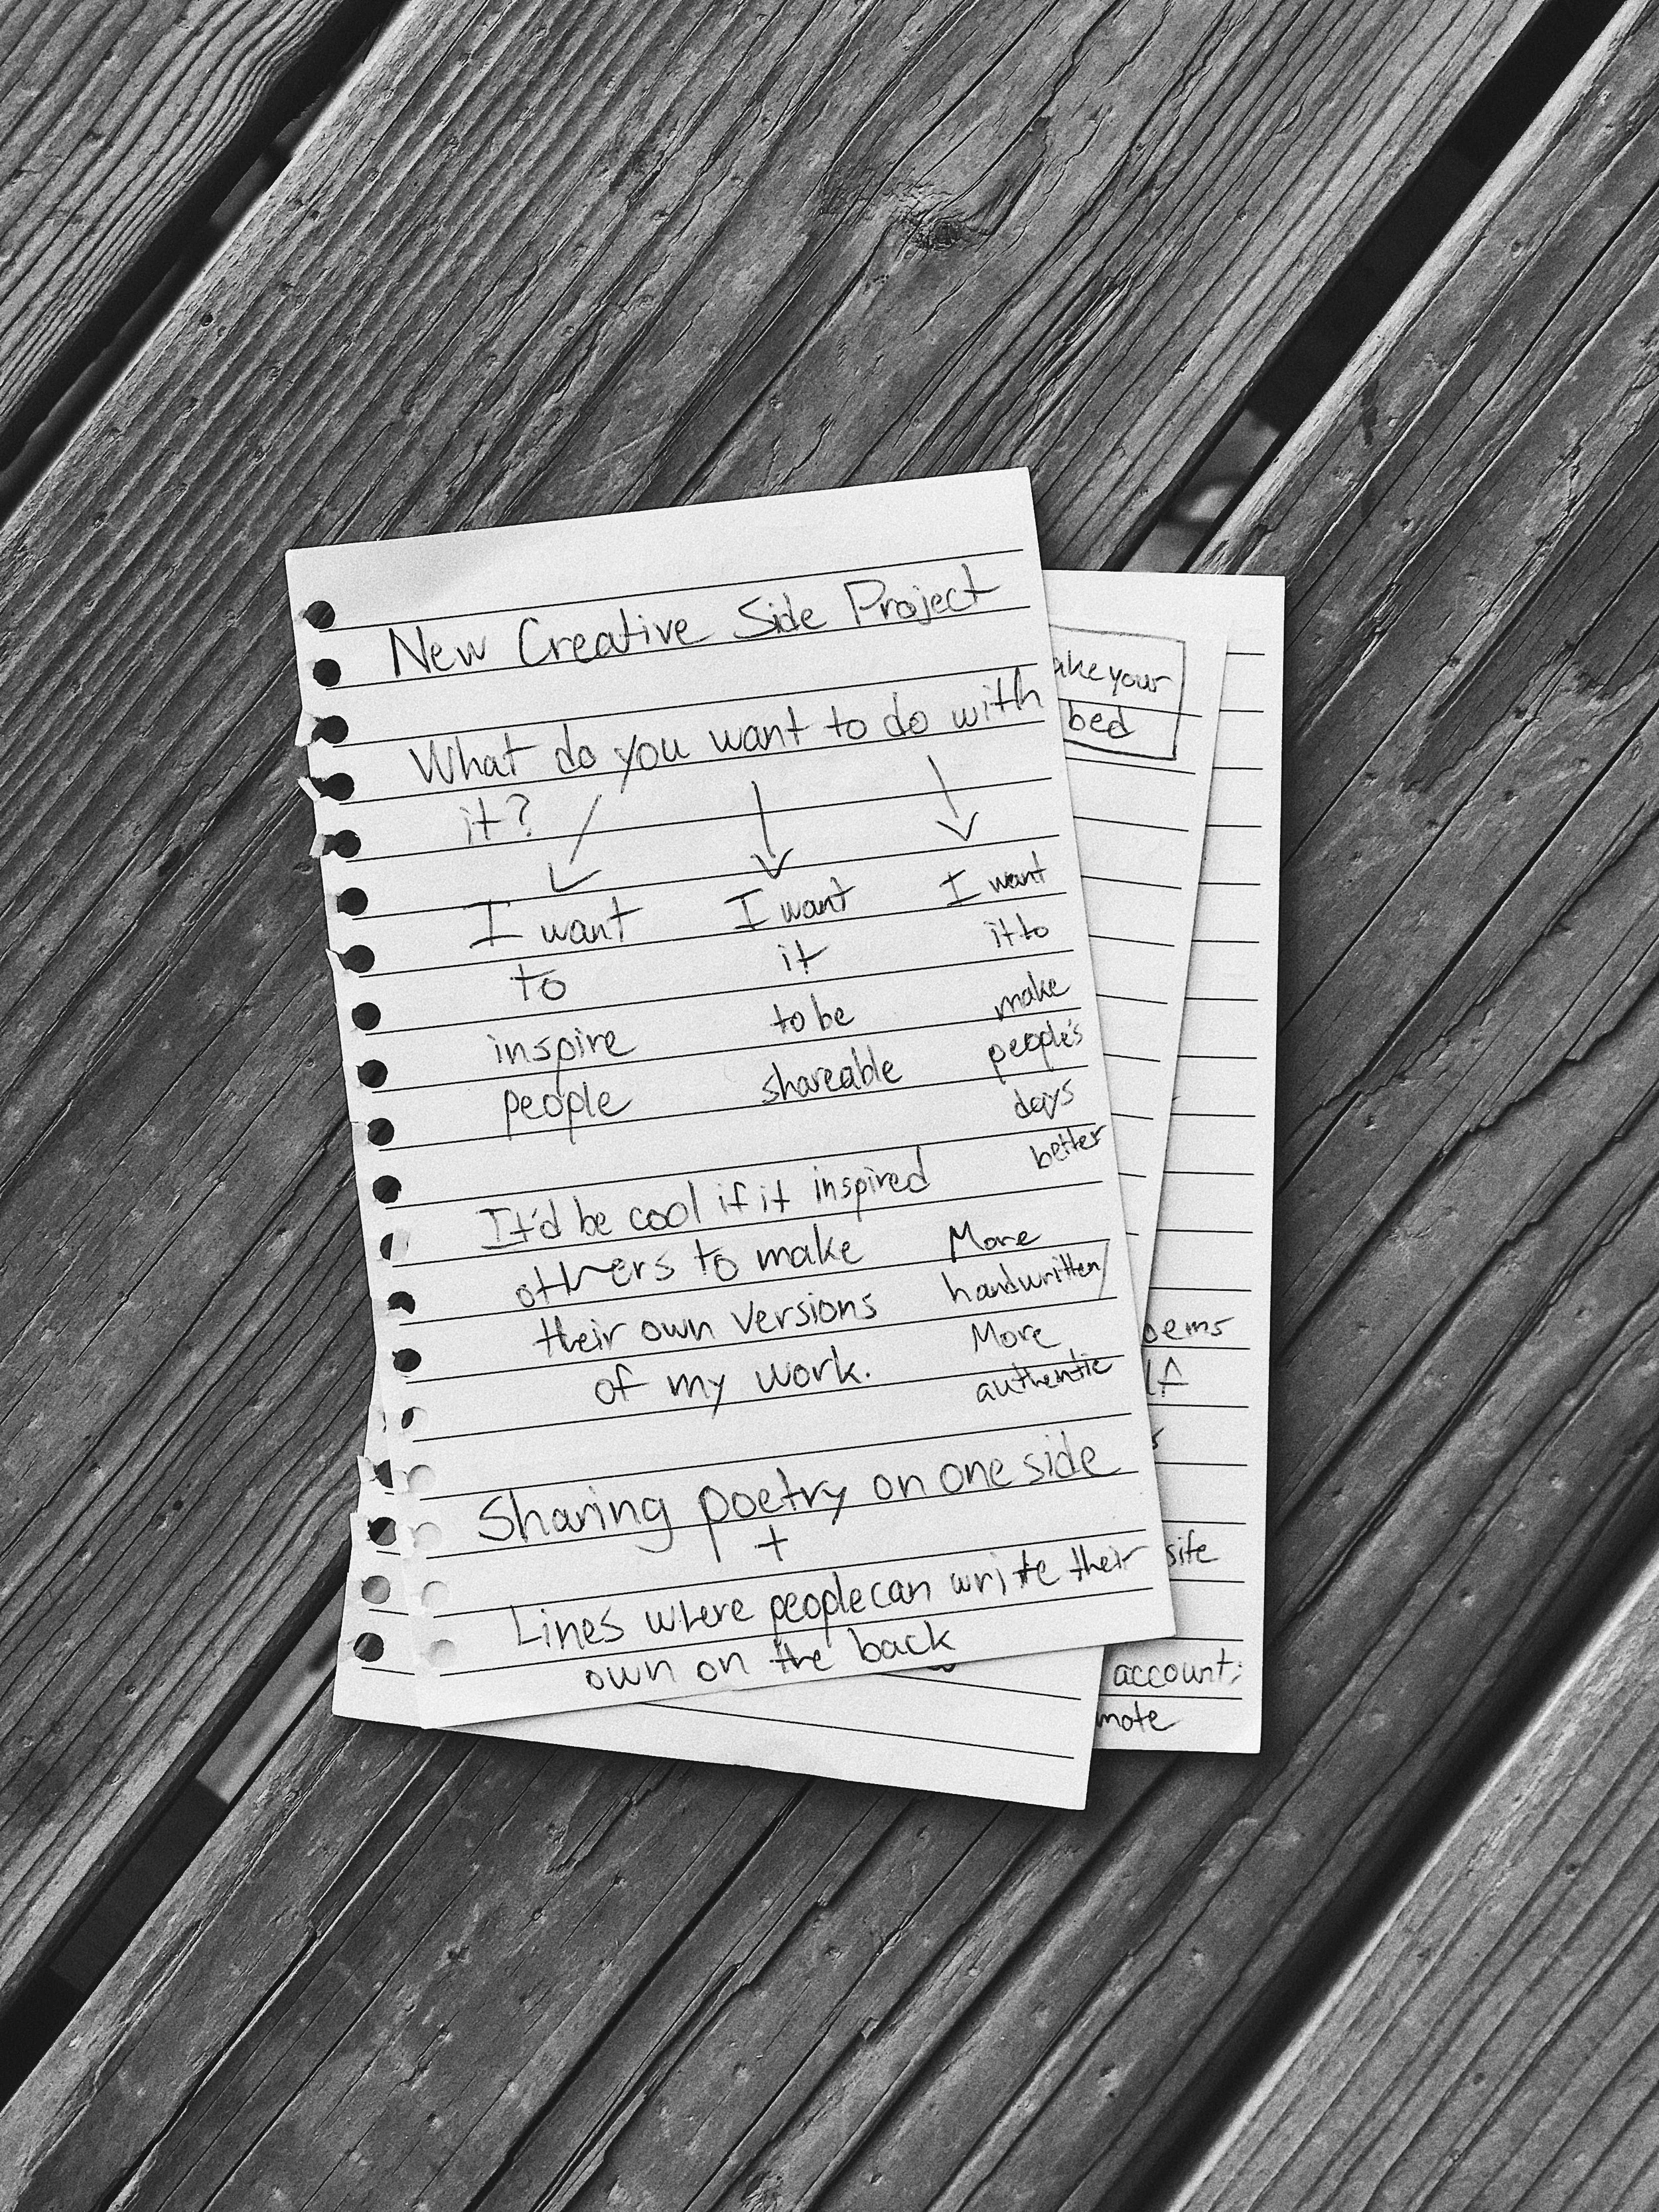 New Creative Side Project
What do you want to do with
it?
I want
to
inspire
people
I want
it
to be
shareable
I want
it to
make
people's
days
better
It'd be cool if it inspired
others to make
their own versions
of my work.
More
handwritten/
More
authentic
Sharing poetry on one side
+
Lines where people can write their
own on the back
ake your
bed
oems
site
account;
mote